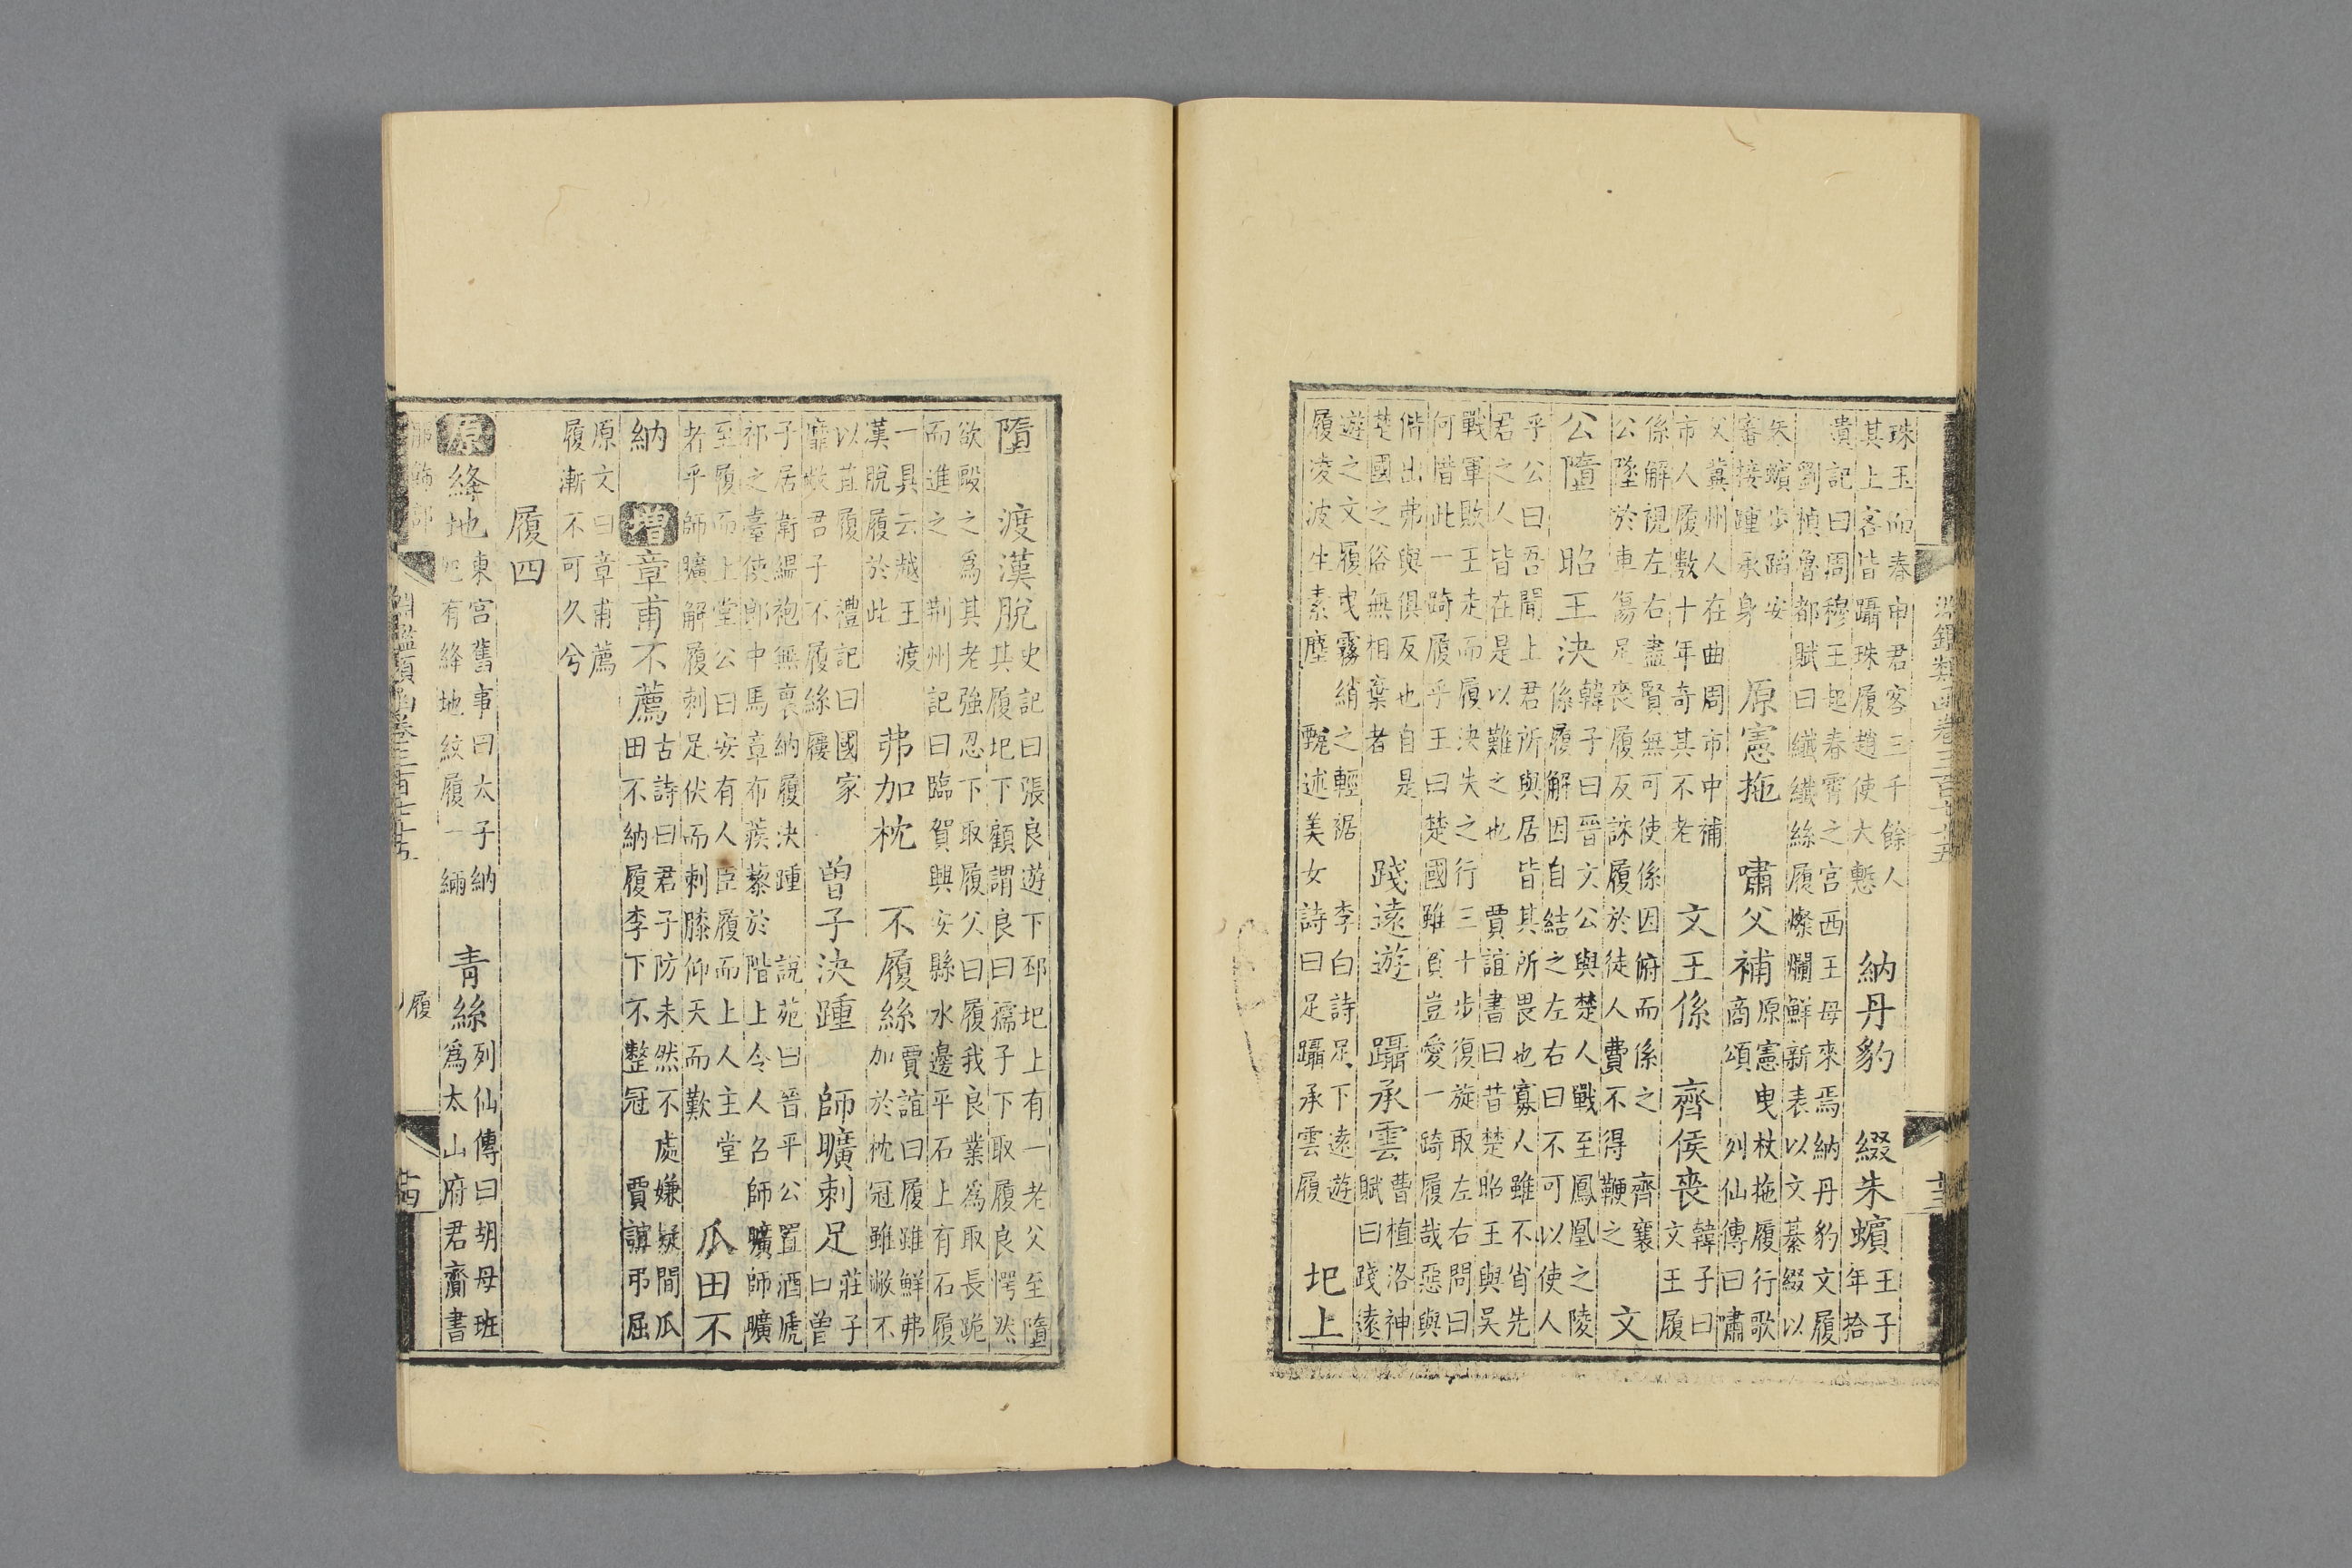 淵鑑類函卷三百七十五
珠玉而春申君客三千餘人
其上客皆躡珠履趙使大慙
納丹豹　綴朱蠙
王子
年拾
遺記曰周穆王起春霄之宮西王母來焉納丹豹文履
劉楨魯都賦曰纖纖絲履燦爛鮮新表以文綦綴以
朱蠙步蹈安
審接踵承身
原憲拖　嘯父補
原憲曳杖拖履行歌
商頌　列仙傳曰嘯
父冀州人在曲周市中補
市人履數十年奇其不老
文王係　齊侯喪
韓子曰
文王履
係解視左右盡賢無可使係因俯而係之　齊襄
公墜於車傷足喪履反誅履於徒人費不得鞭之
文
公墮　昭王決
韓子曰晉文公與楚人戰至鳳凰之陵
係履解因自結之左右曰不可以使人
乎公曰吾聞上君所與居皆其所畏也寡人雖不肖先
君之人皆在是以難之也　賈誼書曰昔楚昭王與吳
戰軍敗王走而履決失之行三十步復旋取左右問曰
何惜此一踦履乎王曰楚國雖貧豈愛一踦履哉惡與
偕出弗與俱反也自是
楚國之俗無相棄者
踐遠遊　躡承雲
曹植洛神
賦曰踐遠
遊之文履曳霧綃之輕裾　李白詩足下遠遊
履凌波生素塵　甄述美女詩曰足躡承雲履
圯上
墮　渡漢脫
史記曰張良遊下邳圯上有一老父至墮
其履圯下顧謂良曰孺子下取履良愕然
欲毆之爲其老強忍下取履父曰履我良業爲取長跪
而進之　荆州記曰臨賀興安縣水邊平石上有石履
一具云越王渡
漢脫履於此
弗加枕　不履絲
賈誼曰履雖鮮弗
加於枕冠雖敝不
以苴履　禮記曰國家
靡敝君子不履絲屨
曾子決踵　師曠刺足
莊子
曰曾
子居衛縕袍無裏納履決踵　說苑曰晉平公置酒虒
祁之臺使郎中馬章布蒺藜於階上令人召師曠師曠
至履而上堂公曰安有人臣履而上人主堂
者乎師曠解履刺足伏而刺膝仰天而歎
瓜田不
納　增章甫不薦
古詩曰君子防未然不處嫌疑間瓜
田不納履李下不整冠　賈誼弔屈
原文曰章甫薦
履漸不可久兮
履四
原絳地
東宮舊事曰太子納
妃有絳地紋履一緉
青絲
列仙傳曰胡母班
爲太山府君齎書
淵鑑類函卷三百七十五
履